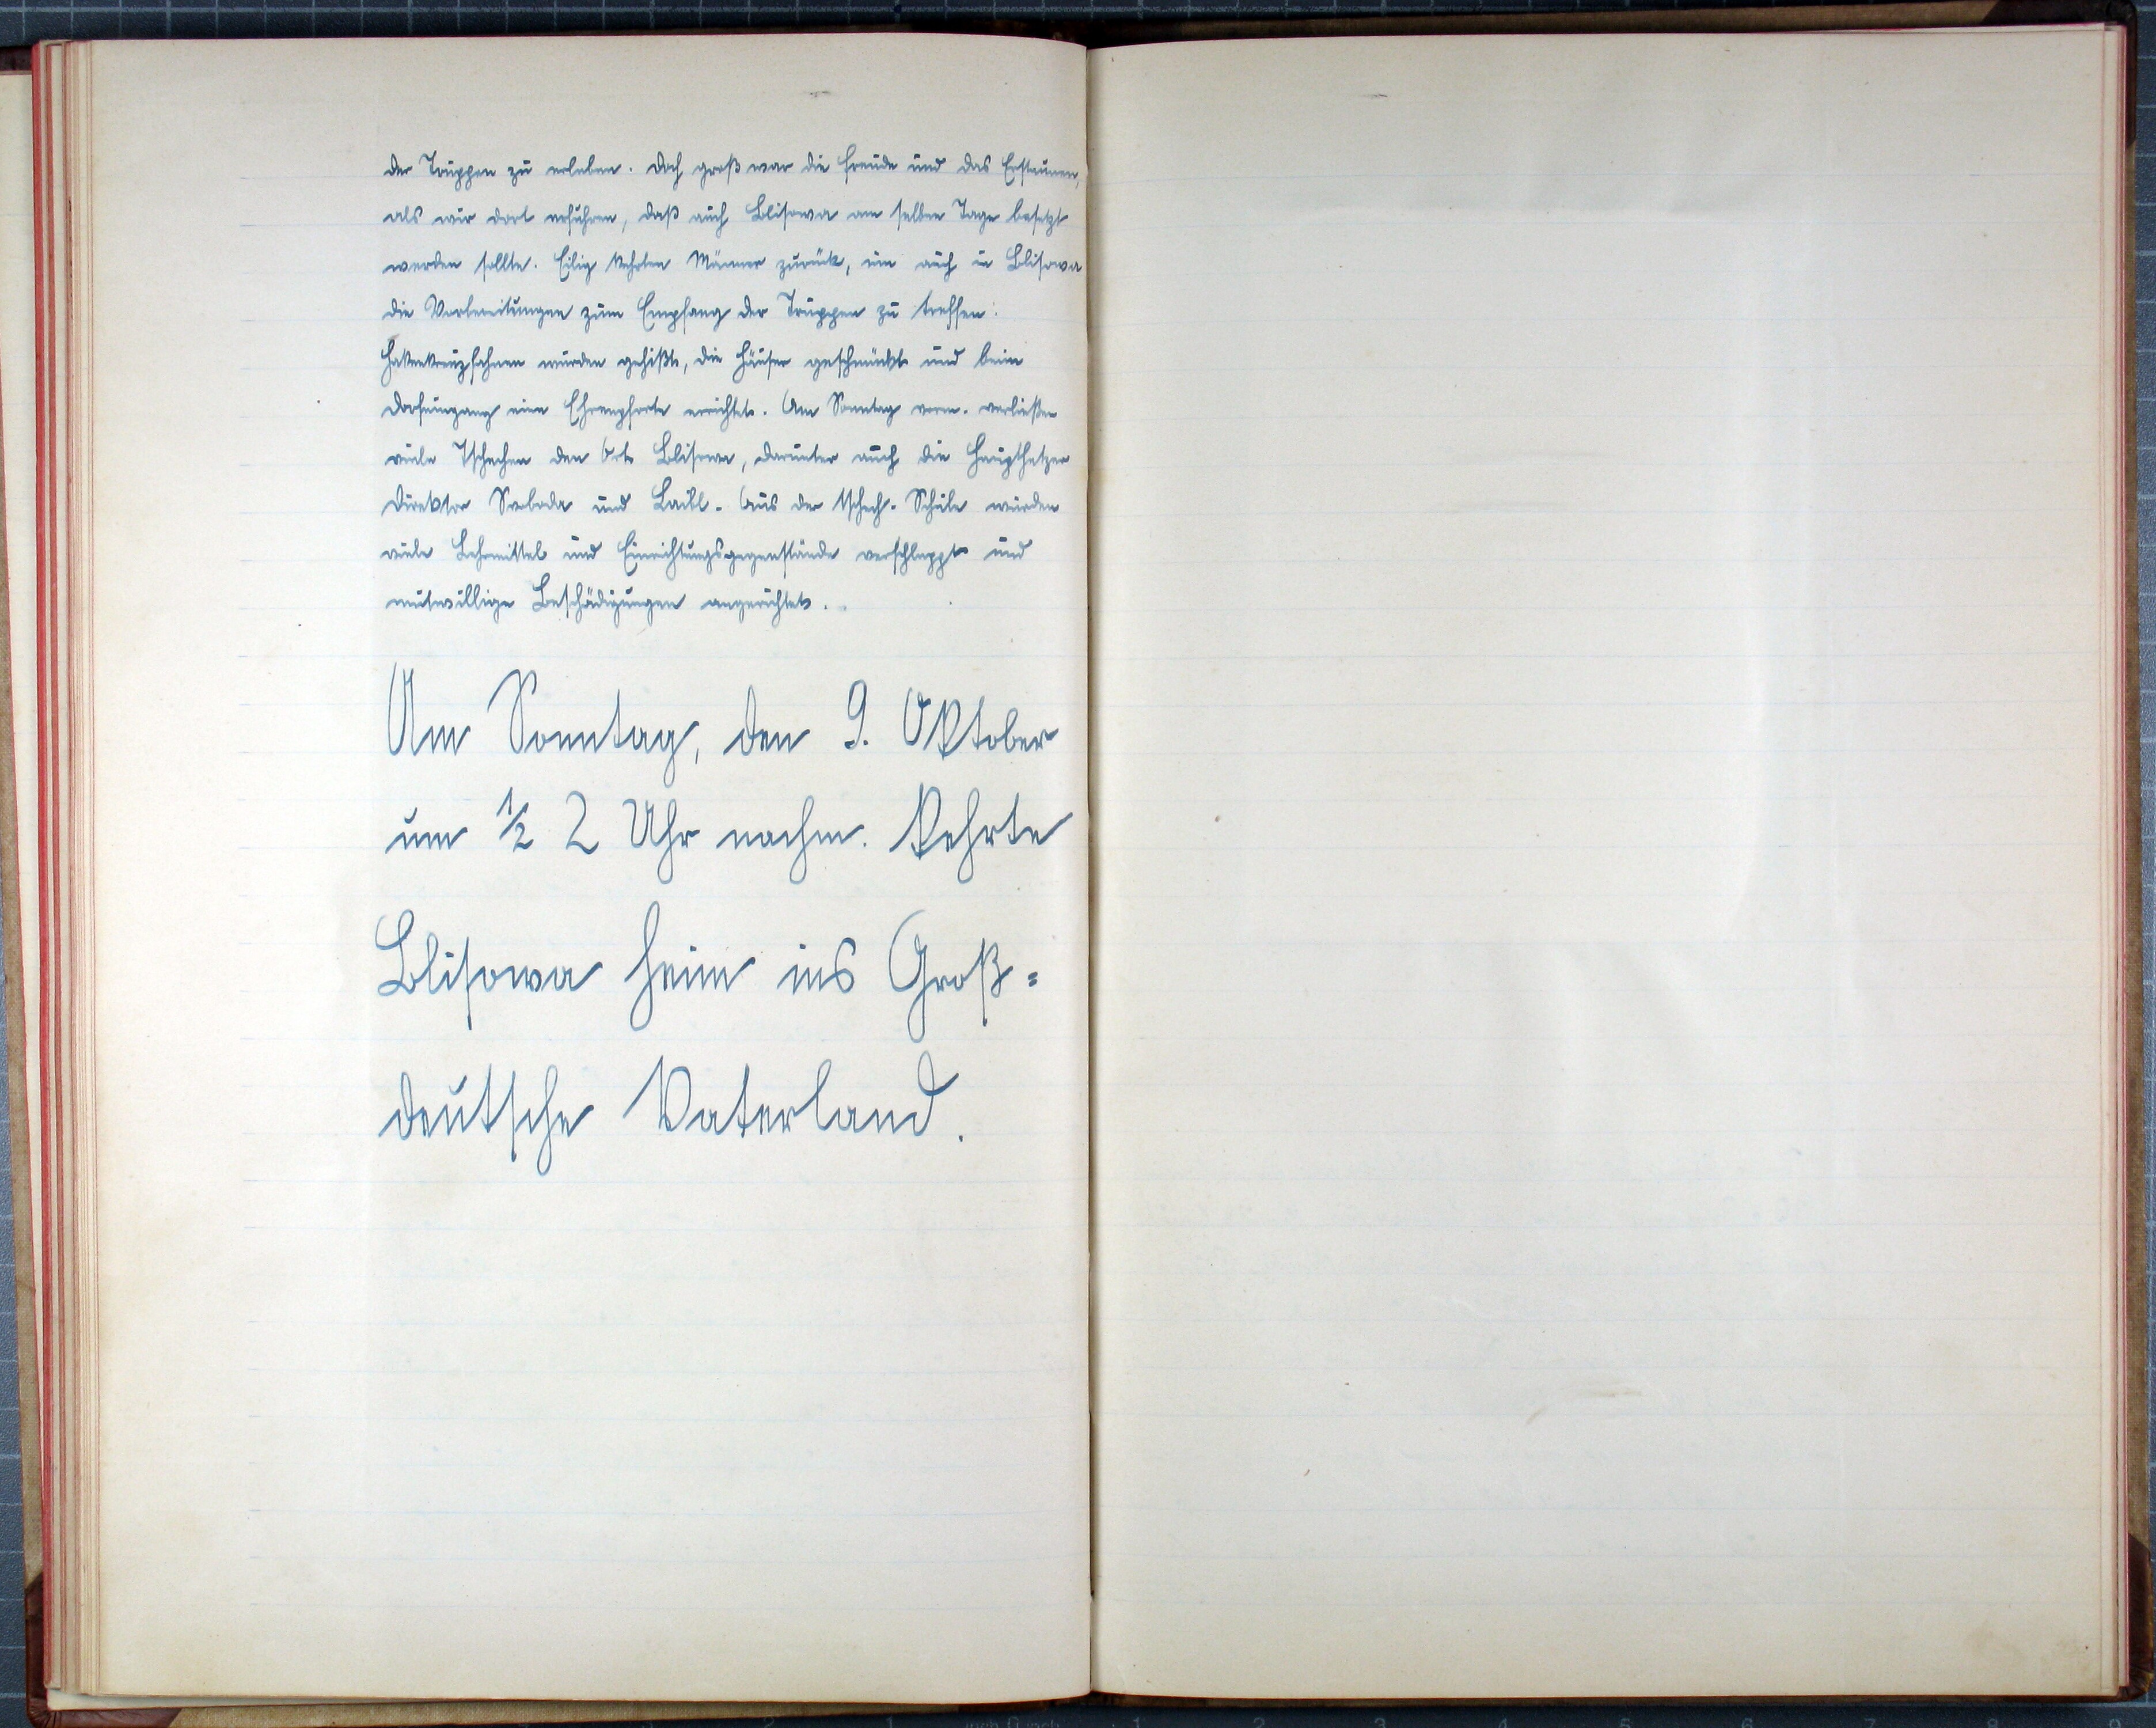 der Truppen zu erleben. Doch groß war die Freude und das Erstaunen,
als wir dort erfuhren, daß auch Blisowa am selben Tage besetzt
werden sollte. Eilig kehrten Männer zurück, um auch in Blisowa
die Vorbereitungen zum Empfang der Truppen zu treffen.
Hakenkreuzfahnen wurden gehißt, die Häuser geschmückt und beim
Dorfeingang eine Ehrenpforte errichtet. Am Sonntag vorm. verließen
viele Tschechen den Ort Blisowa, darunter auch die Haupthetzer
Direktor Svoboda und Laibl. Aus der tschech. Schule wurden
viele Lehrmittel und Einrichtungsgegenstände verschleppt und
mutwillige Beschädigungen angerichtet.
Am Sonntag, den 9. Oktober
um 1/2 2 Uhr nachm. kehrte
Blisowa heim ins Groß=
deutsche Vaterland.